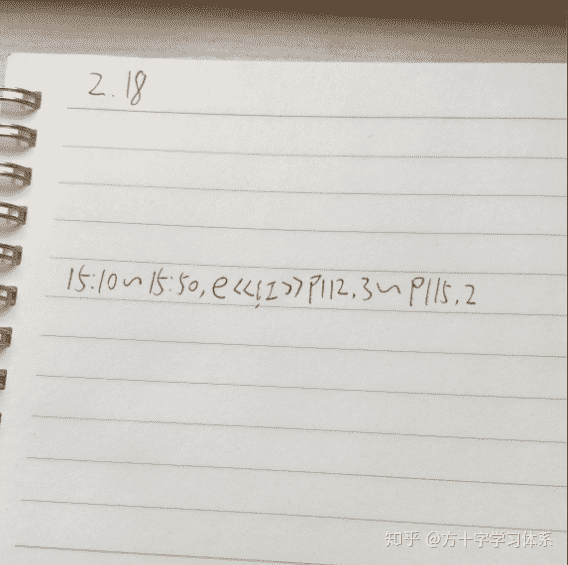 2.18
15:10~15:50, e<<区>>P112.3~P115.2
知乎 @方十字学习体系